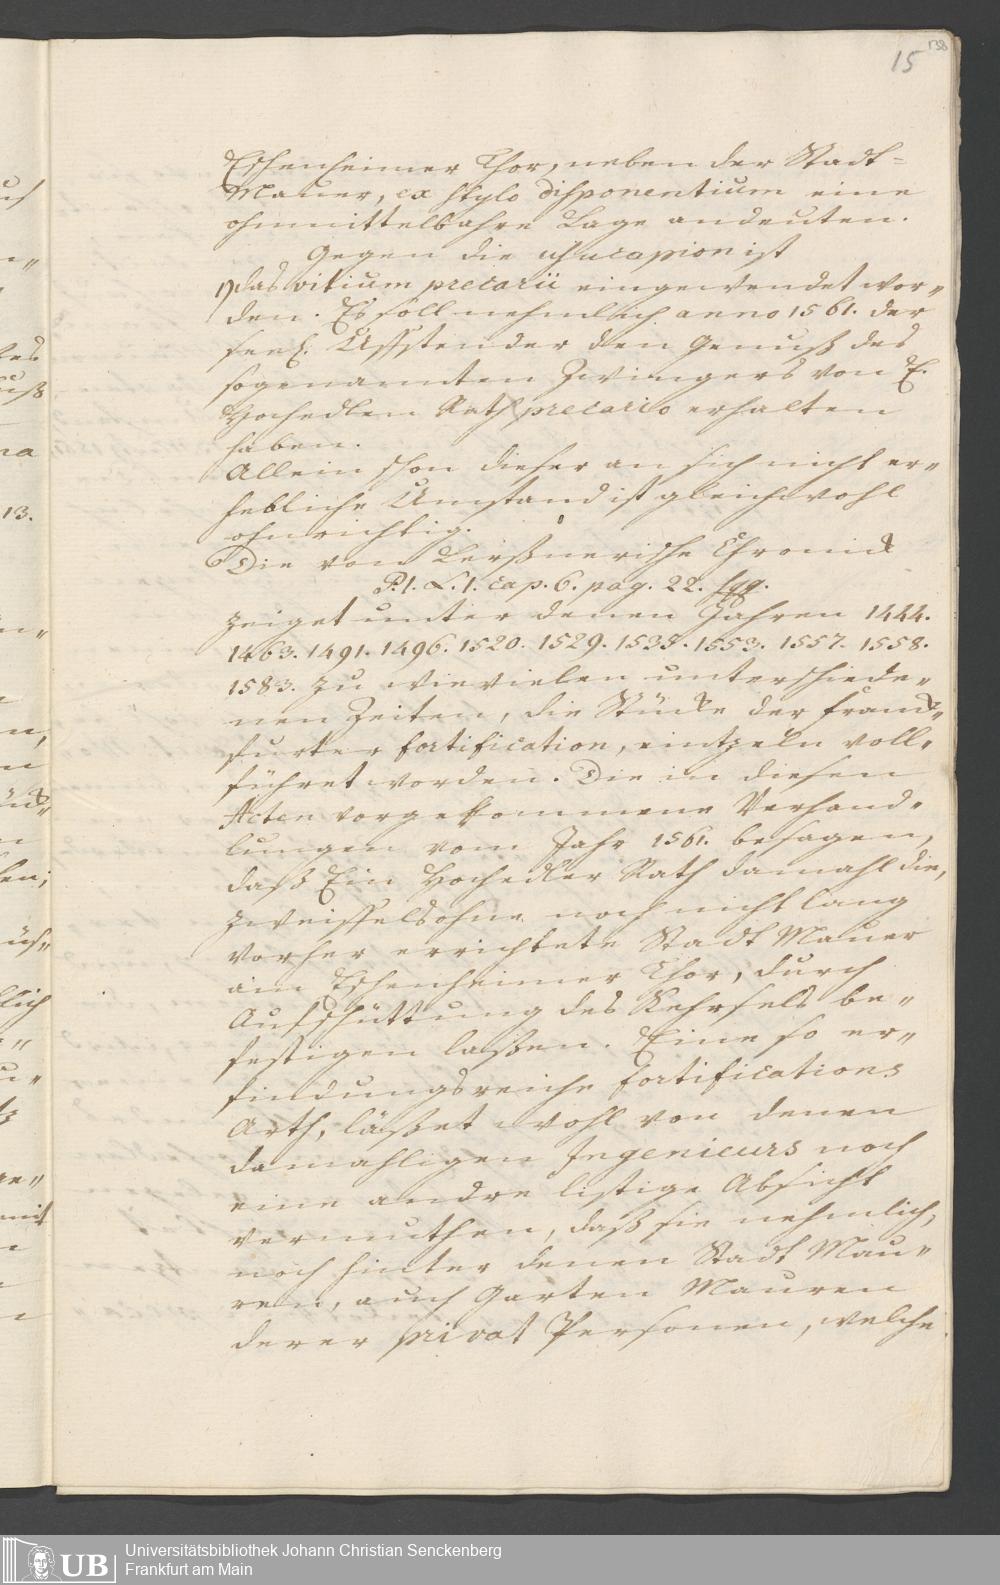 138
15
Eschenheimer Thor, neben der Stadt=
Mauer, ex stylo disponentium eine
ohnmittelbahre Lage andeuten.
Gegen die usucapion ist
1) das vitium precarii eingewendet wor„
den. Es soll nehmlich anno 1561. der
seel. Uffstender den Genuß des
sogenannten Zwingers von E.
Hochedlen Rath precario erhalten
haben.
Allein schon dieser an sich nicht er„
hebliche Umstand ist gleichwohl
ohnrichtig.
Die von Lerßnerische Chronick
P. 1. L. 1. cap. 6. pag. 22. sqq.
zeiget unter denen Jahren 1444.
1463. 1491. 1496. 1520. 1529. 1535. 1553. 1557. 1558.
1583. zu wievielen unterschiede„
nen Zeiten, die Stücke der franck„
furter fortification, eintzeln voll„
führet worden. Die in diesen
Acten vorgekommene Verhand„
lungen vom Jahr 1561. besagen,
daß Ein Hochedler Rath damahl die,
zweiffelsohne noch nicht lang
vorher errichtete Stadt Mauer
am Eschenheimer Thor, durch
Aufschüttung des Kehrsels be„
festigen laßen. Eine so er„
findungsreiche fortifications
Arth, läßet wohl von denen
damahligen Ingenieurs noch
eine andre listige Absicht
vermuthen, daß sie nehmlich,
noch hinter denen Stadt Mau„
ren, auch Garten Mauren
derer privat Personen, welche
UB
Universitätsbibliothek Johann Christian Senckenberg
Frankfurt am Main